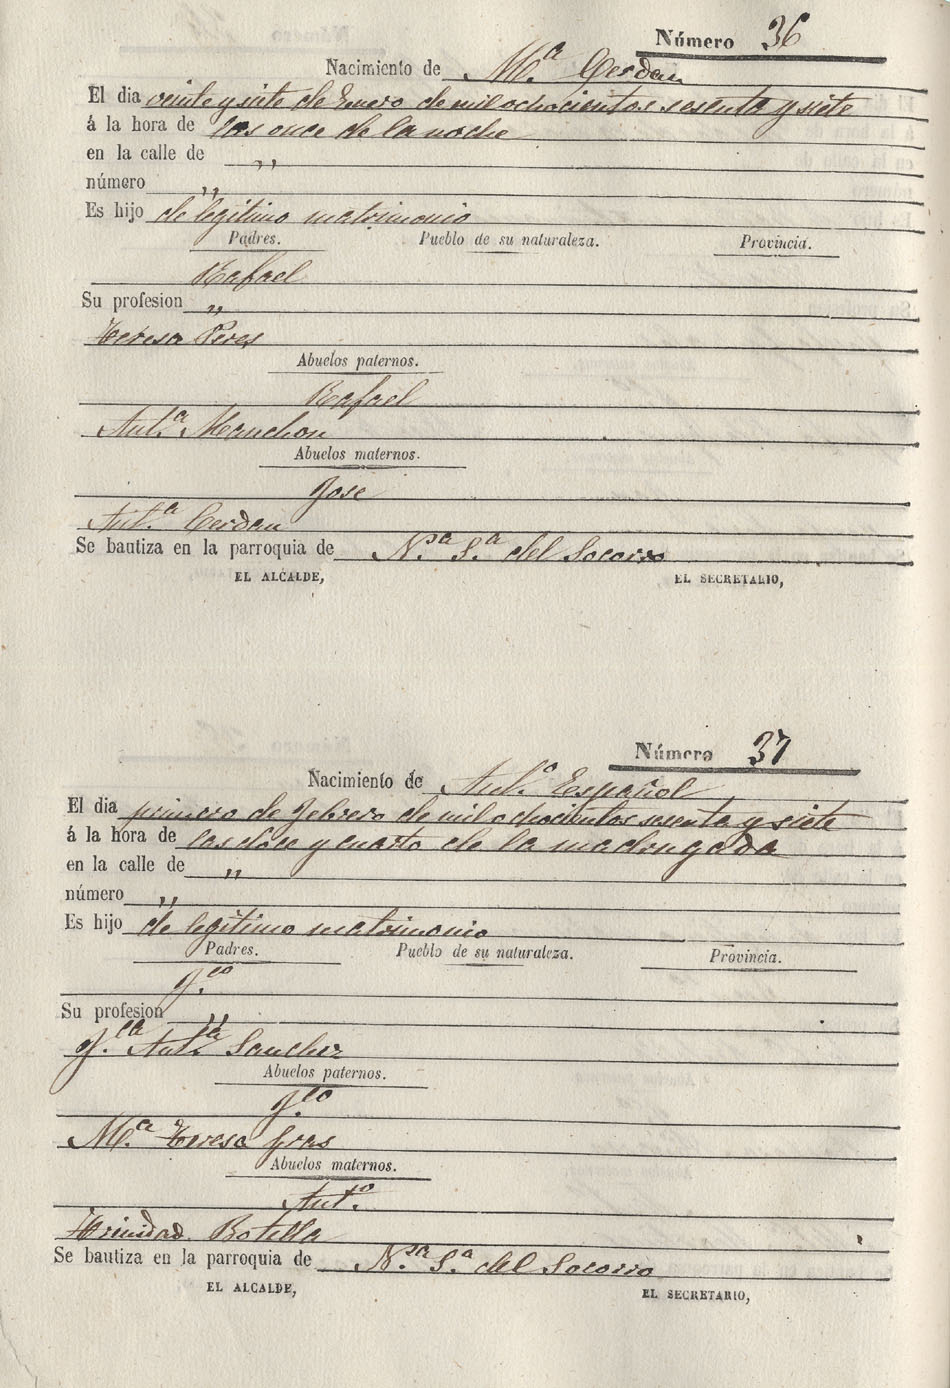 Número 36
Nacimiento de Mª Cerdan
El dia veinte y siete de Enero de mil ochocientos sesenta y siete
á la hora de las once de la noche
en la calle de ,,
número ,,
Es hijo de legitimo matrimonio
Padres. Pueblo de su naturaleza. Provincia.
Rafael
Su profesion ,,
Teresa Peres
Abuelos paternos.
Rafael
Ant.ª Manchon
Abuelos maternos.
Jose
Ant.ª Cerdan
Se bautiza en la parroquia de N.ra S.ª del Socorro
EL ALCALDE, EL SECRETARIO,
Número 37
Nacimiento de Ant.º Español
El dia primero de Febrero de mil ochocientos sesenta y siete
á la hora de las doce y cuarto de la madrugada
en la calle de ,,
número ,,
Es hijo de legitimo matrimonio
Padres. Pueblo de su naturaleza. Provincia.
F.co
Su profesion ,,
F.ca Ant.ª Sanchez
Abuelos paternos.
F.co
M.ª Teresa Gras
Abuelos maternos.
Ant.º
Trinidad Botella
Se bautiza en la parroquia de N.ra S.ª del Socorro
EL ALCALDE, EL SECRETARIO,